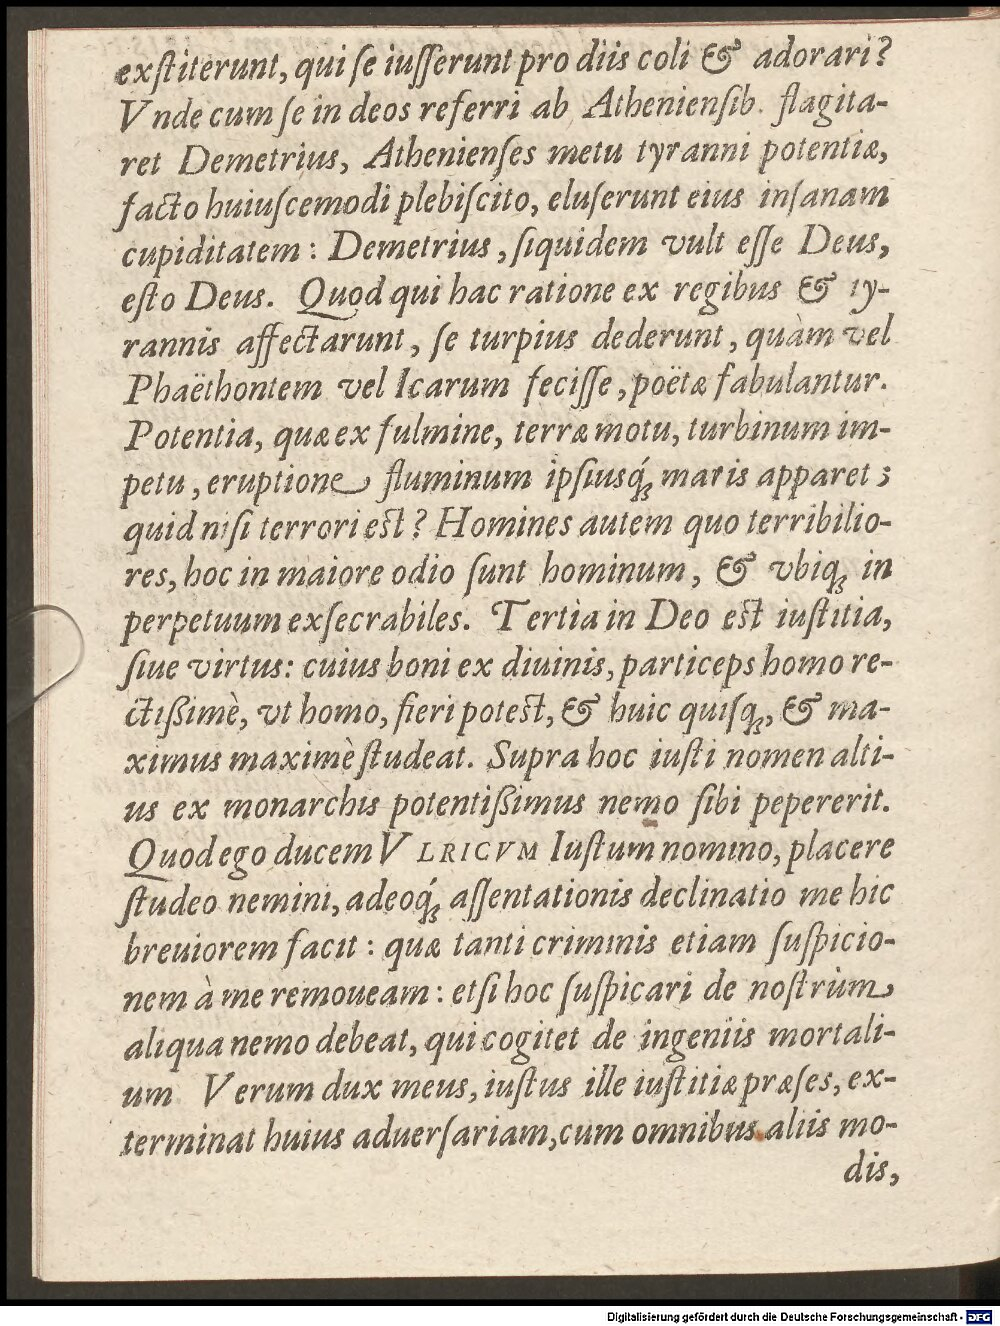 exſtiterunt, qui ſe iuſſerunt pro diis coli & adorari?
Vnde cum ſe in deos referri ab Athenienſib. flagita-
ret Demetrius, Athenienſes metu tyranni potentiæ,
facto huiuſcemodi plebiſcito, eluſerunt eius inſanam
cupiditatem: Demetrius, ſiquidem vult eſſe Deus,
eſto Deus. Quod qui hac ratione ex regibus & ty-
rannis affectarunt, ſe turpius dederunt, quàm vel
Phaëthontem vel Icarum feciſſe, poëtæ fabulantur.
Potentia, quæ ex fulmine, terræ motu, turbinum im-
petu, eruptione fluminum ipſiusq́ꝫ maris apparet;
quid niſi terrori est? Homines autem quo terribilio-
res, hoc in maiore odio ſunt hominum, & vbiqꝫ in
perpetuum exſecrabiles. Tertia in Deo est iuſtitia,
ſiue virtus: cuius boni ex diuinis, particeps homo re-
ctißimè, vt homo, fieri potest, & huic quiſqꝫ, & ma-
ximus maximè ſtudeat. Supra hoc iuſti nomen alti-
us ex monarchis potentißimus nemo ſibi pepererit.
Quod ego ducem VLRICVM Iuſtum nomino, placere
ſtudeo nemini, adeoq́ꝫ aſſentationis declinatio me hic
breuiorem facit: quæ tanti criminis etiam ſuſpicio-
nem à me remoueam: etſi hoc ſuſpicari de noſtrûm
aliqua nemo debeat, qui cogitet de ingeniis mortali-
um Verum dux meus, iuſtus ille iuſtitiæ præſes, ex-
terminat huius aduerſariam, cum omnibus aliis mo-
dis,
Digitalisierung gefördert durch die Deutsche Forschungsgemeinschaft - DFG